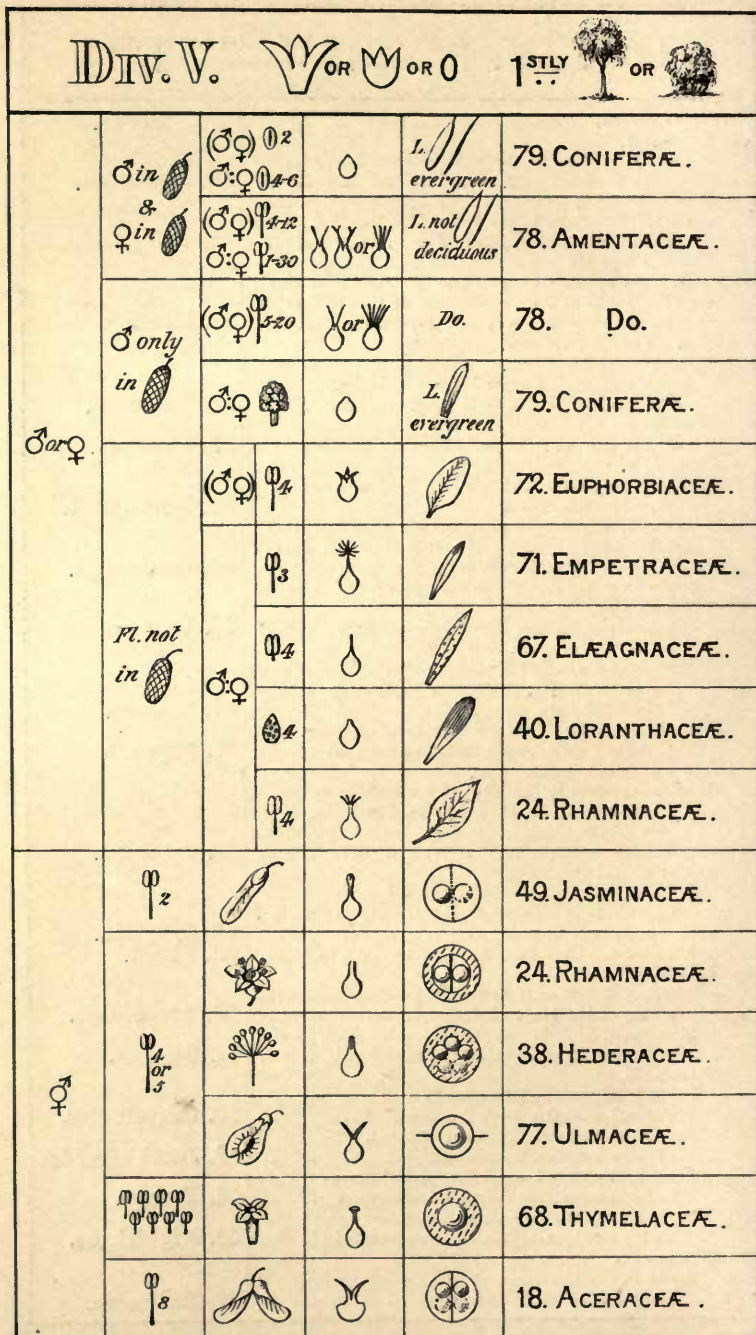 DIV. V. OR OR O 1STLY OR
♂ in & ♀ in (♂♀) 2 ♂:♀ 4-6 L. evergreen 79. CONIFERÆ.
(♂♀) 4-12 ♂:♀ 1-30 or L. not deciduous 78. AMENTACEÆ.
♂ only in (♂♀) 5-20 or Do. 78. Do.
♂:♀ L. evergreen 79. CONIFERÆ.
♂ or ♀
Fl. not in (♂♀) 4 72. EUPHORBIACEÆ.
♂:♀ 3 71. EMPETRACEÆ.
4 67. ELÆAGNACEÆ.
4 40. LORANTHACEÆ.
4 24. RHAMNACEÆ.
⚥ 2 49. JASMINACEÆ.
4 or 5 24. RHAMNACEÆ.
38. HEDERACEÆ.
77. ULMACEÆ.
68. THYMELACEÆ.
8 18. ACERACEÆ.